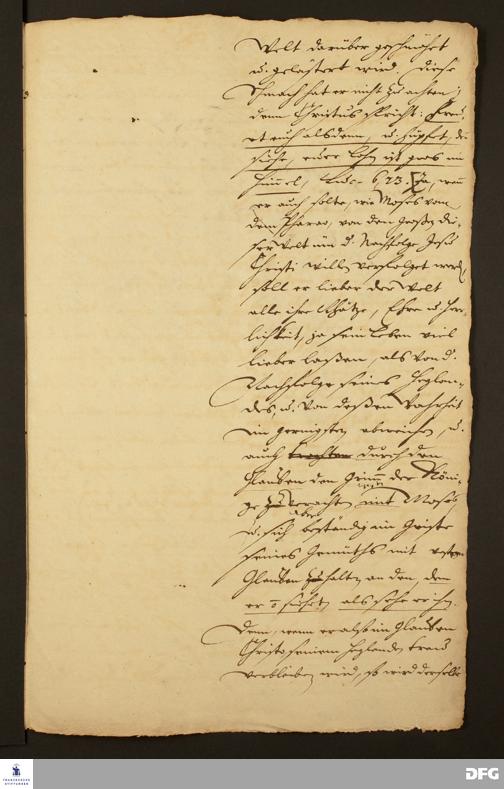 Welt darüber geschmähet
u. gelästert wird. Diese
Schmach hat er nicht zu achten;
denn Christus spricht: Freu-
et euch alsdenn, u. hüpfet, den
siehe, euer Lohn ist gros im
Himmel, Luc. 6, 23. Ja, wenn
er auch solte, wie Moses von
dem Pharao, von den großen die-
ser Welt um d. Nachfolge Jesu
Christi willen verfolget werden,
soll er lieber der Welt
alle ihre Schätze, Ehre u. Her-
lichkeit, ja sein Leben viel
lieber laßen, als von d.
Nachfolge seines Heylan-
des, u. von deßen Wahrheit
im geringsten abweichen, u.
auch durch den
Glauben den Grimm der Köni-
ge verachten mit Mose,
u. sich aber beständig im Geiste
seines Gemüths mit
Glauben halten an den, den
er o siehet, als sehe er ihn.
Denn, wenn er also im Glauben
Christo seinem Heylande treu
verbleiben wird, so wird derselbe
FRANCKESCHE
STIFTUNGEN
DFG